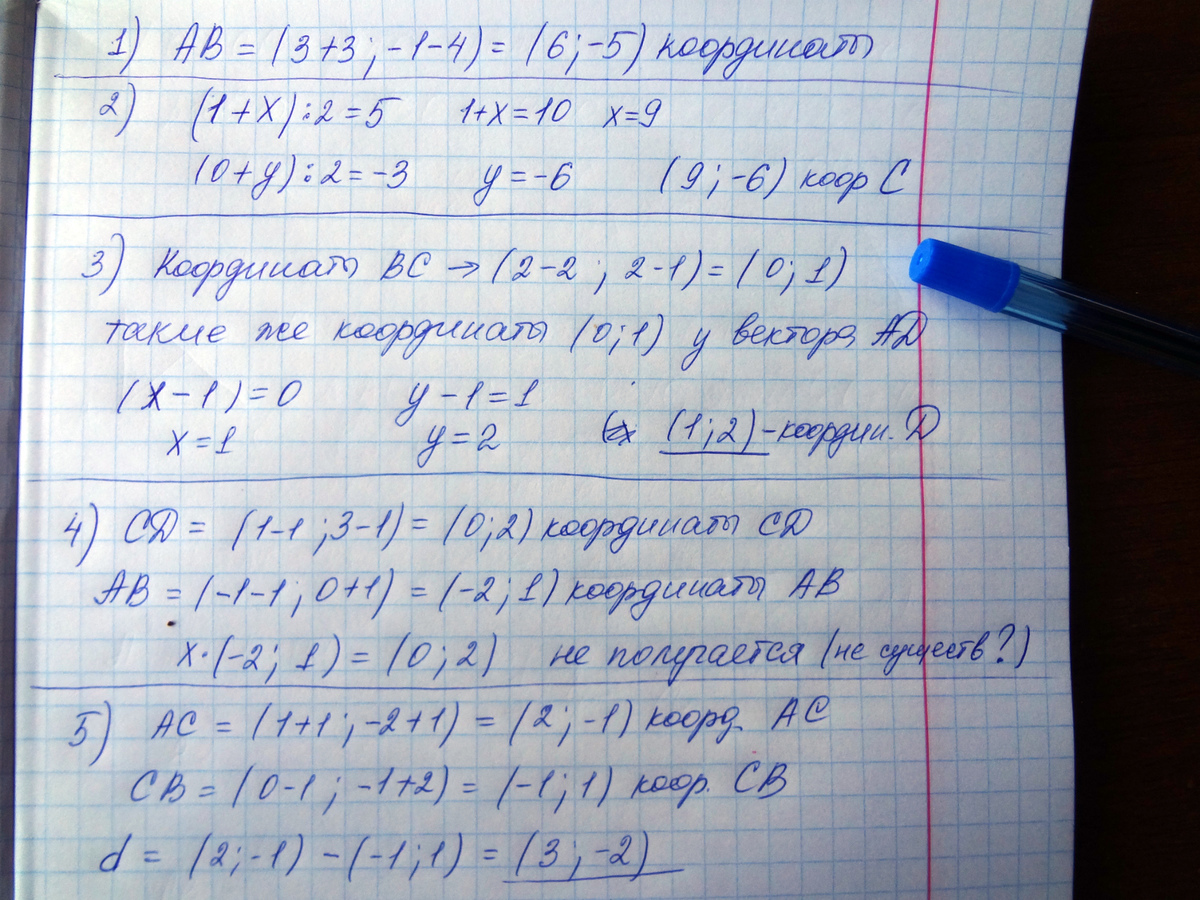 1) AB = (3+3; -1-4) = (6; -5) координаты
2) (1+x):2=5 1+x=10 x=9
(0+y):2=-3 y=-6 (9; -6) коор C
3) Координаты BC → (2-2; 2-1) = (0; 1)
такие же координаты (0; 1) у вектора AD
(x-1)=0 y-1=1
x=1 y=2 (1; 2) - координ. D
4) CD = (1-1; 3-1) = (0; 2) координаты CD
AB = (-1-1; 0+1) = (-2; 1) координаты AB
x·(-2; 1) = (0; 2) не получается (не существ?)
5) AC = (1+1; -2+1) = (2; -1) коорд. AC
CB = (0-1; -1+2) = (-1; 1) коор. CB
d = (2; -1) - (-1; 1) = (3; -2)